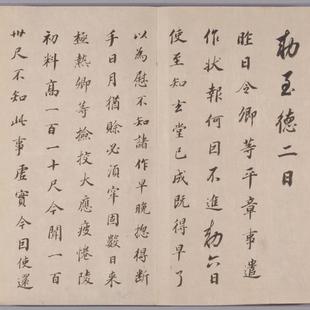 勅至德二日
昨日令卿等平章事遣
作狀報何因不進勅六日
使至知玄堂已成既得早了
以為慰不知諸作早晚揔得断
手日月猶賒必須牢固數日来
極熱卿等撿挍大應疲惓陵
初料高一百一十尺今聞一百
卅尺不知此事虛實今因使還